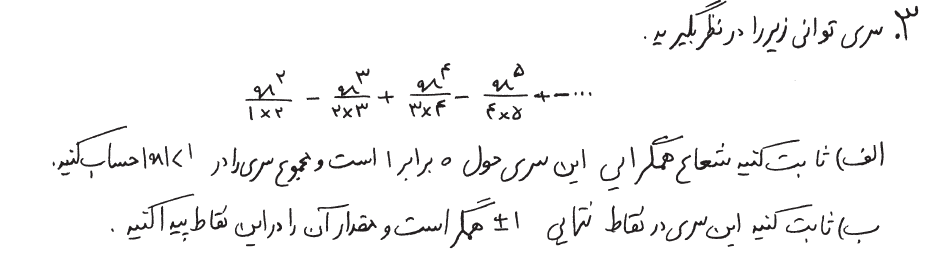 ۳. سری توانی زیر را در نظر بگیرید.
x^۲/(۱×۲) − x^۳/(۲×۳) + x^۴/(۳×۴) − x^۵/(۴×۵) + − ...
الف) ثابت کنید شعاع همگرایی این سری حول ۰ برابر ۱ است و مجموع سری را در |x|<۱ حساب کنید.
ب) ثابت کنید این سری در نقاط نتهایی ±۱ همگر است و مقدار آن را در این نقاط پیدا کنید.